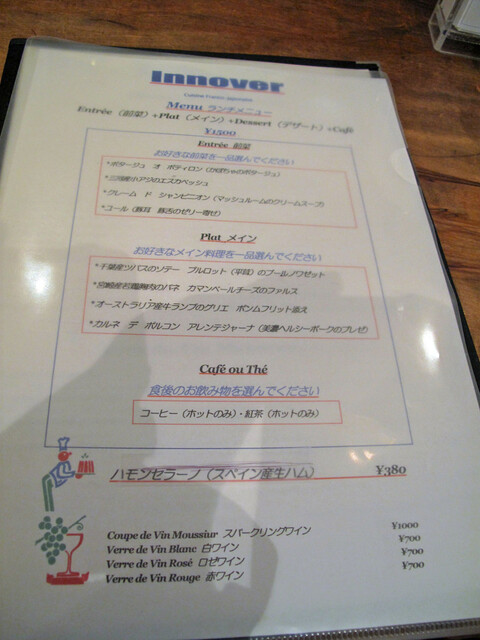 Innover
Cuisine Franco Japonaise
Menu ランチメニュー
Entrée（前菜）+Plat（メイン）+Dessert（デザート）+Café
¥1500
Entrée 前菜
お好きな前菜を一品選んでください
*ポタージュ オ ポティロン（かぼちゃのポタージュ）
*三河産小アジのエスカベッシュ
*クレーム ド シャンピニオン（マッシュルームのクリームスープ）
*コール（豚耳 豚舌のゼリー寄せ）
Plat メイン
お好きなメイン料理を一品選んでください
*千葉産ツバスのソテー プルロット（平茸）のブールノワゼット
*宮崎産若鶏胸肉のパネ カマンベールチーズのファルス
*オーストラリア産牛ランプのグリエ ポンムフリット添え
*カルネ デ ポルコン アレンテジャーナ（美濃ヘルシーポークのブレゼ）
Café ou Thé
食後のお飲み物を選んでください
コーヒー（ホットのみ）・紅茶（ホットのみ）
ハモンセラーノ（スペイン産生ハム） ¥380
Coupe de Vin Moussiur スパークリングワイン ¥1000
Verre de Vin Blanc 白ワイン ¥700
Verre de Vin Rosé ロゼワイン ¥700
Verre de Vin Rouge 赤ワイン ¥700